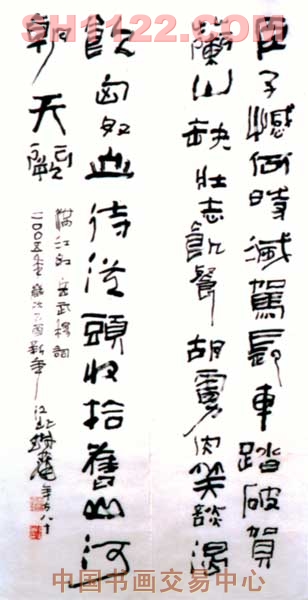 SH1122.COM
臣子憾何時滅駕長車踏破賀
蘭山缺壮志飢餐胡虜肉笑談渴
飲匈奴血待從頭收拾舊山河
朝天闕
滿江紅 岳武穆詞
二〇〇五年 歲次乙酉新年
年方八十
中国书画交易中心